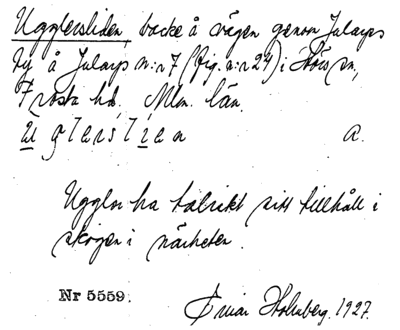 Ugglersliden, backe å vägen genom Jularyps
by å Jularyp n:r 7 (fig. n:r 24) i Höörs sn,
Frosta hd. Mlm. län.
a.
Ugglor ha talrikt sitt tillhåll i
skogen i närheten.
Nr 5559.
Einar Holmberg. 1927.